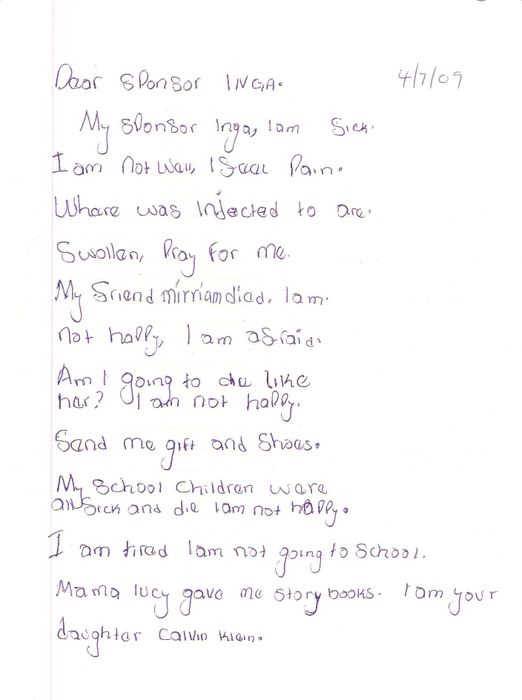 Dear sponsor INGA. 4/7/09
My sponsor Inga, I am Sick.
I am Not Well, I Feel Pain.
Where was Injected to are.
Swollen, Pray for me.
My Friend mirriam died. I am.
not happy, I am afraid.
Am I going to die like
her? I am not happy.
Send me gift and Shoes.
My School Children were
all Sick and die I am not happy.
I am tired I am not going to School.
Mama lucy gave me story books. I am your
daughter Calvin Klein.